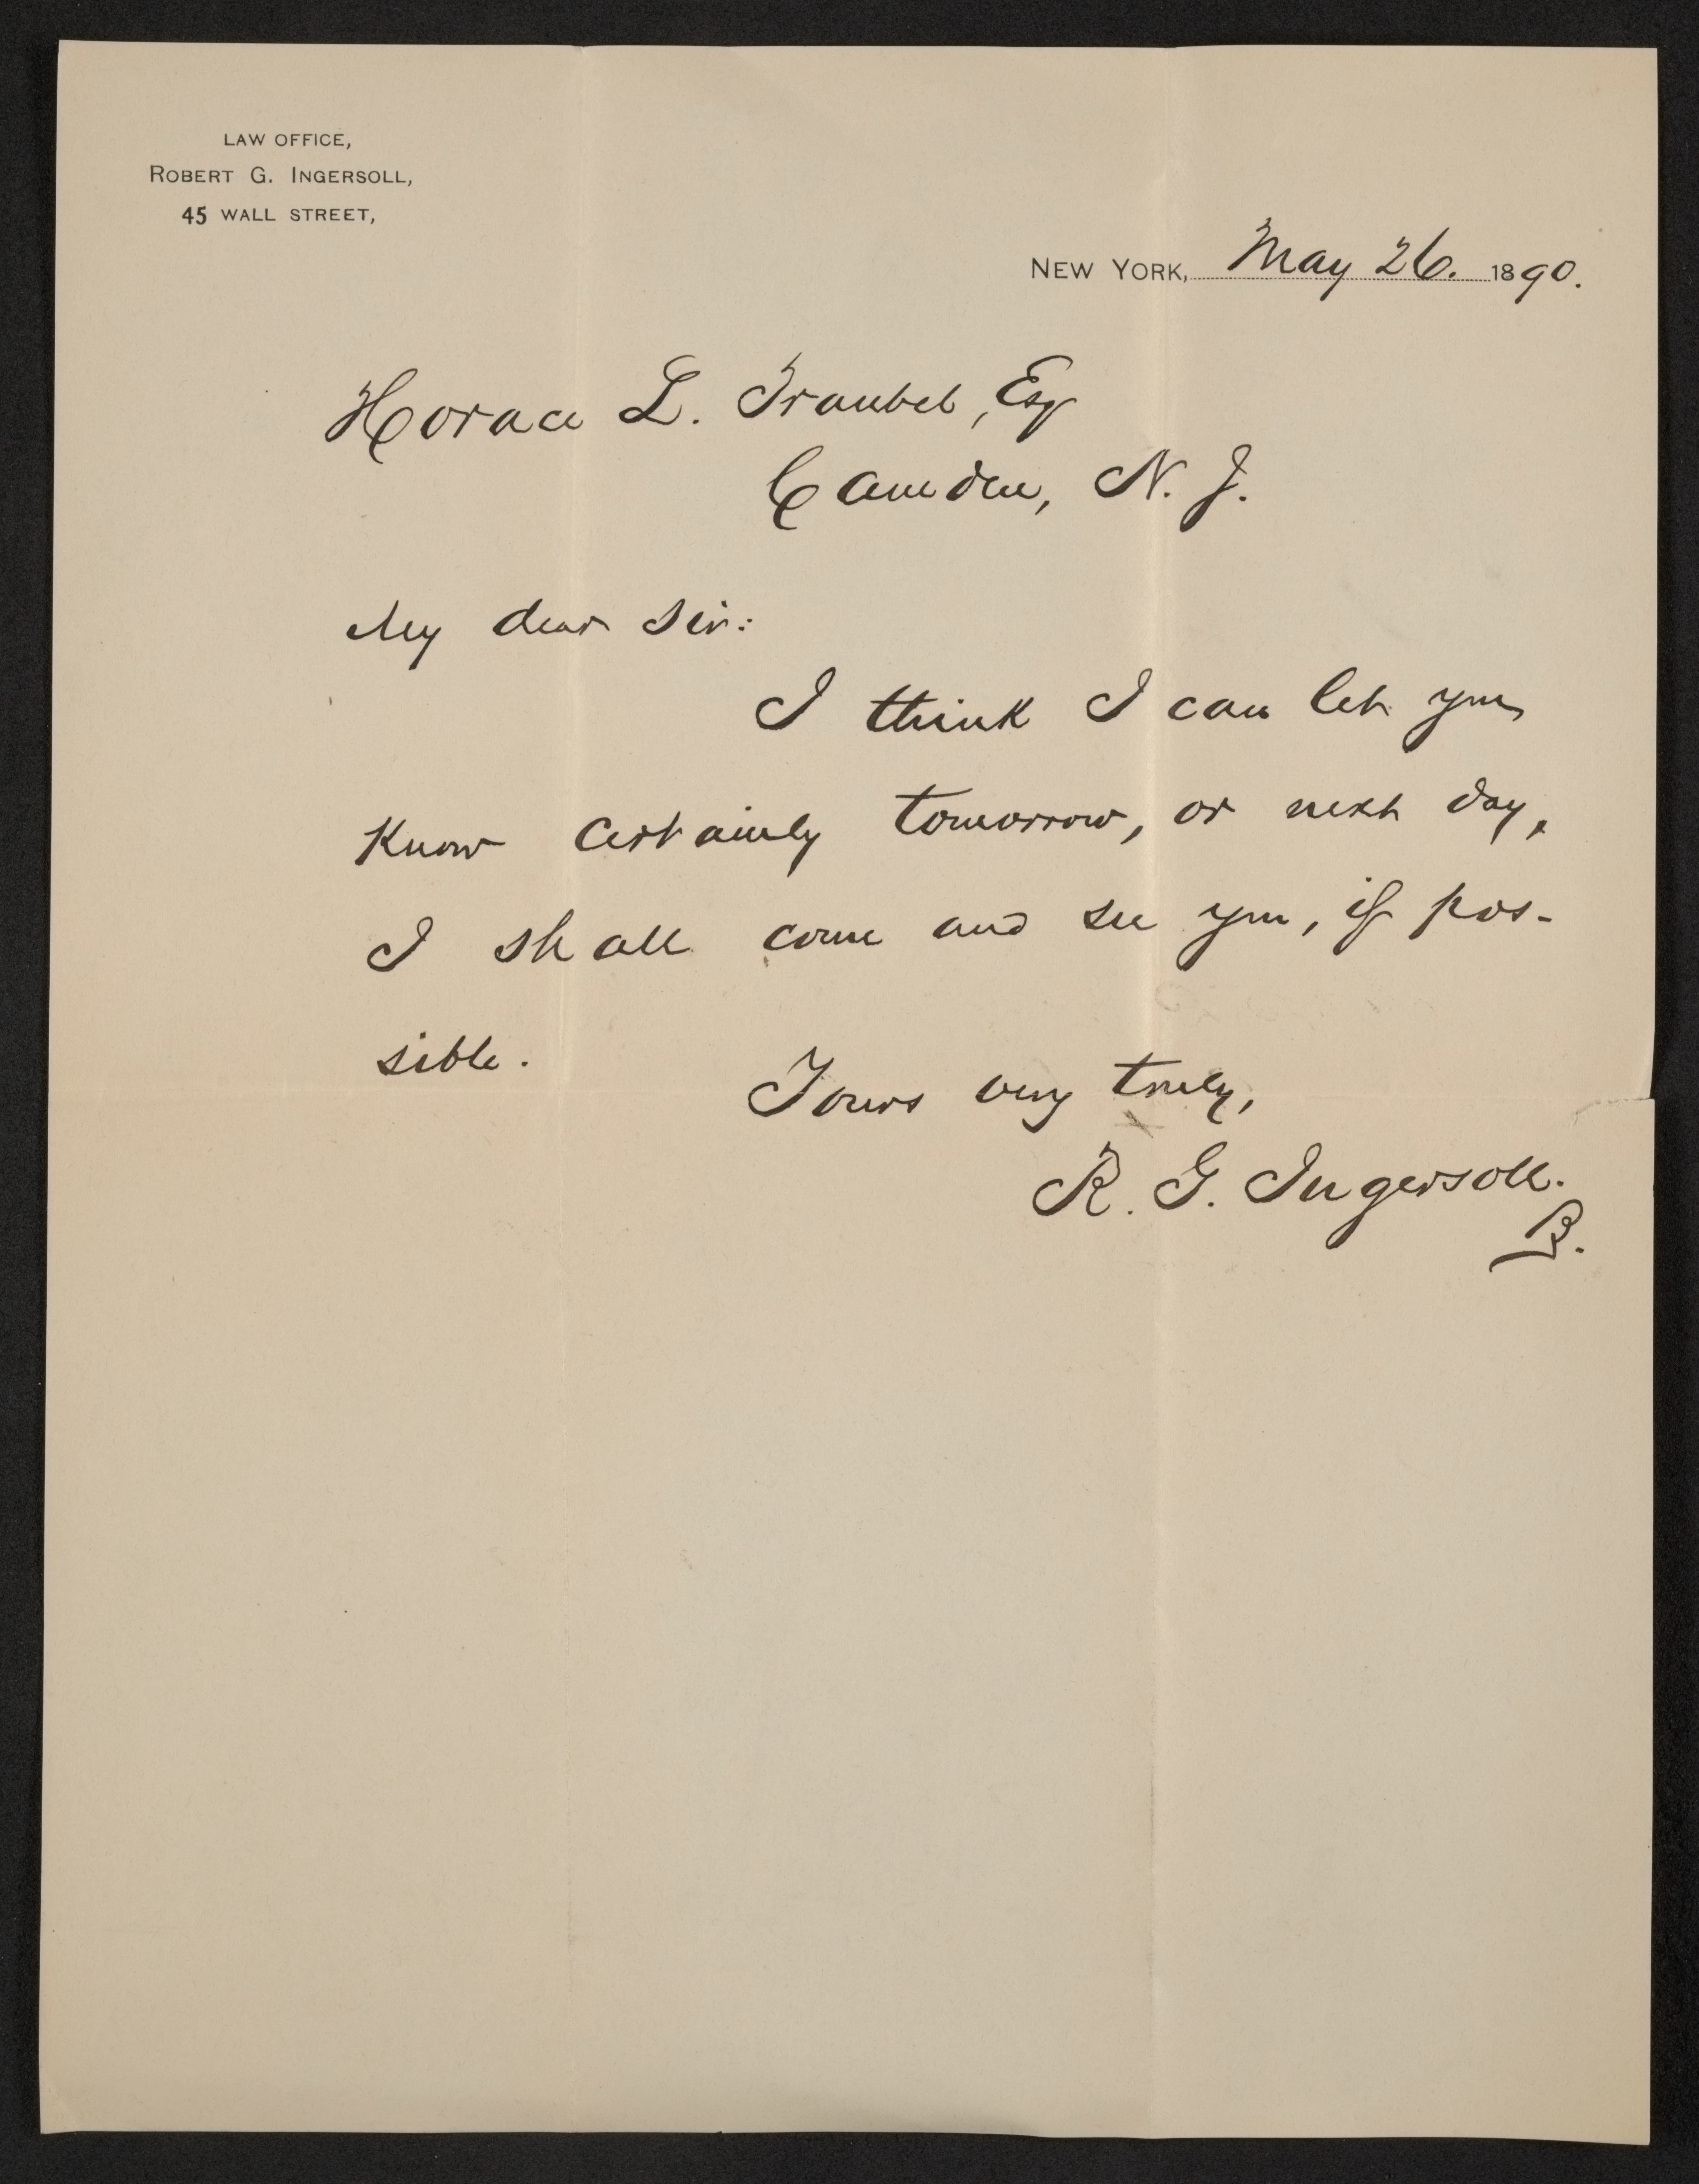 LAW OFFICE,
ROBERT G. INGERSOLL,
45 WALL STREET,
NEW YORK, May 26. 1890.
Horace L. Traubel, Esq
Camden, N. J.
My dear Sir:
I think I can let you
know certainly tomorrow, or next day,
I shall come and see you, if pos-
sible.
Yours very truly,
R. G. Ingersoll.
B.